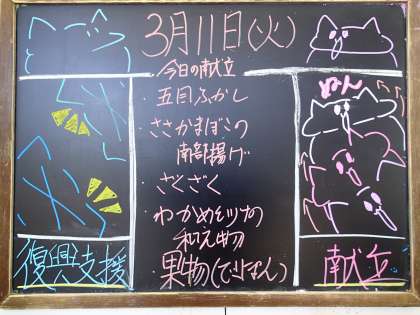 3月11日(火)
今日の献立
・五目ふかし
・ささかまぼこの
南部揚げ
・ざくざく
・わかめとツナの
和え物
・果物(でこぽん)
ぬん
復興支援
献立